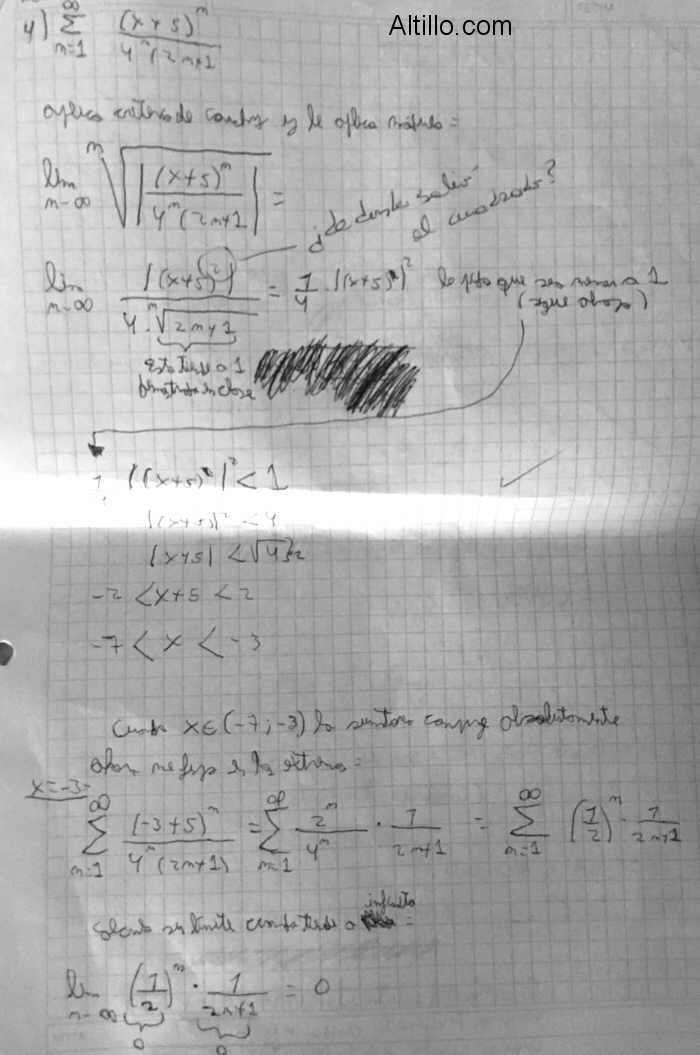 Altillo.com
4) ∞ Σ n=1 (x+5)^n / 4^n (2n+1
aplico criterio de cauchy y le aplico módulo =
lim n→∞ n√|(x+5)^n / 4^n (2n+1| =
¿de donde salió
el cuadrado?
lim n→∞ |(x+5)^2| / 4 · n√2n+1 = 1/4 · |(x+5)|^2 le pido que sea menor a 1
(sigue abajo)
Esto tiende a 1
demostrado en clase
1 |(x+5)|^2 < 1
|(x+5)|^2 < 4
|x+5| < √4 = 2
-2 < x+5 < 2
-7 < x < -3
Cuando x∈(-7;-3) la converge absolutamente
ahora me fijo en los extremos =
x=-3=
∞ Σ n=1 (-3+5)^n / 4^n (2n+1) = ∞ Σ n=1 2^n / 4^n · 1 / 2n+1 = ∞ Σ n=1 (1/2)^n · 1 / 2n+1
calculo su limite cuando tiende a infinito =
lim n→∞ (1/2)^n · 1 / 2n+1 = 0
0 0